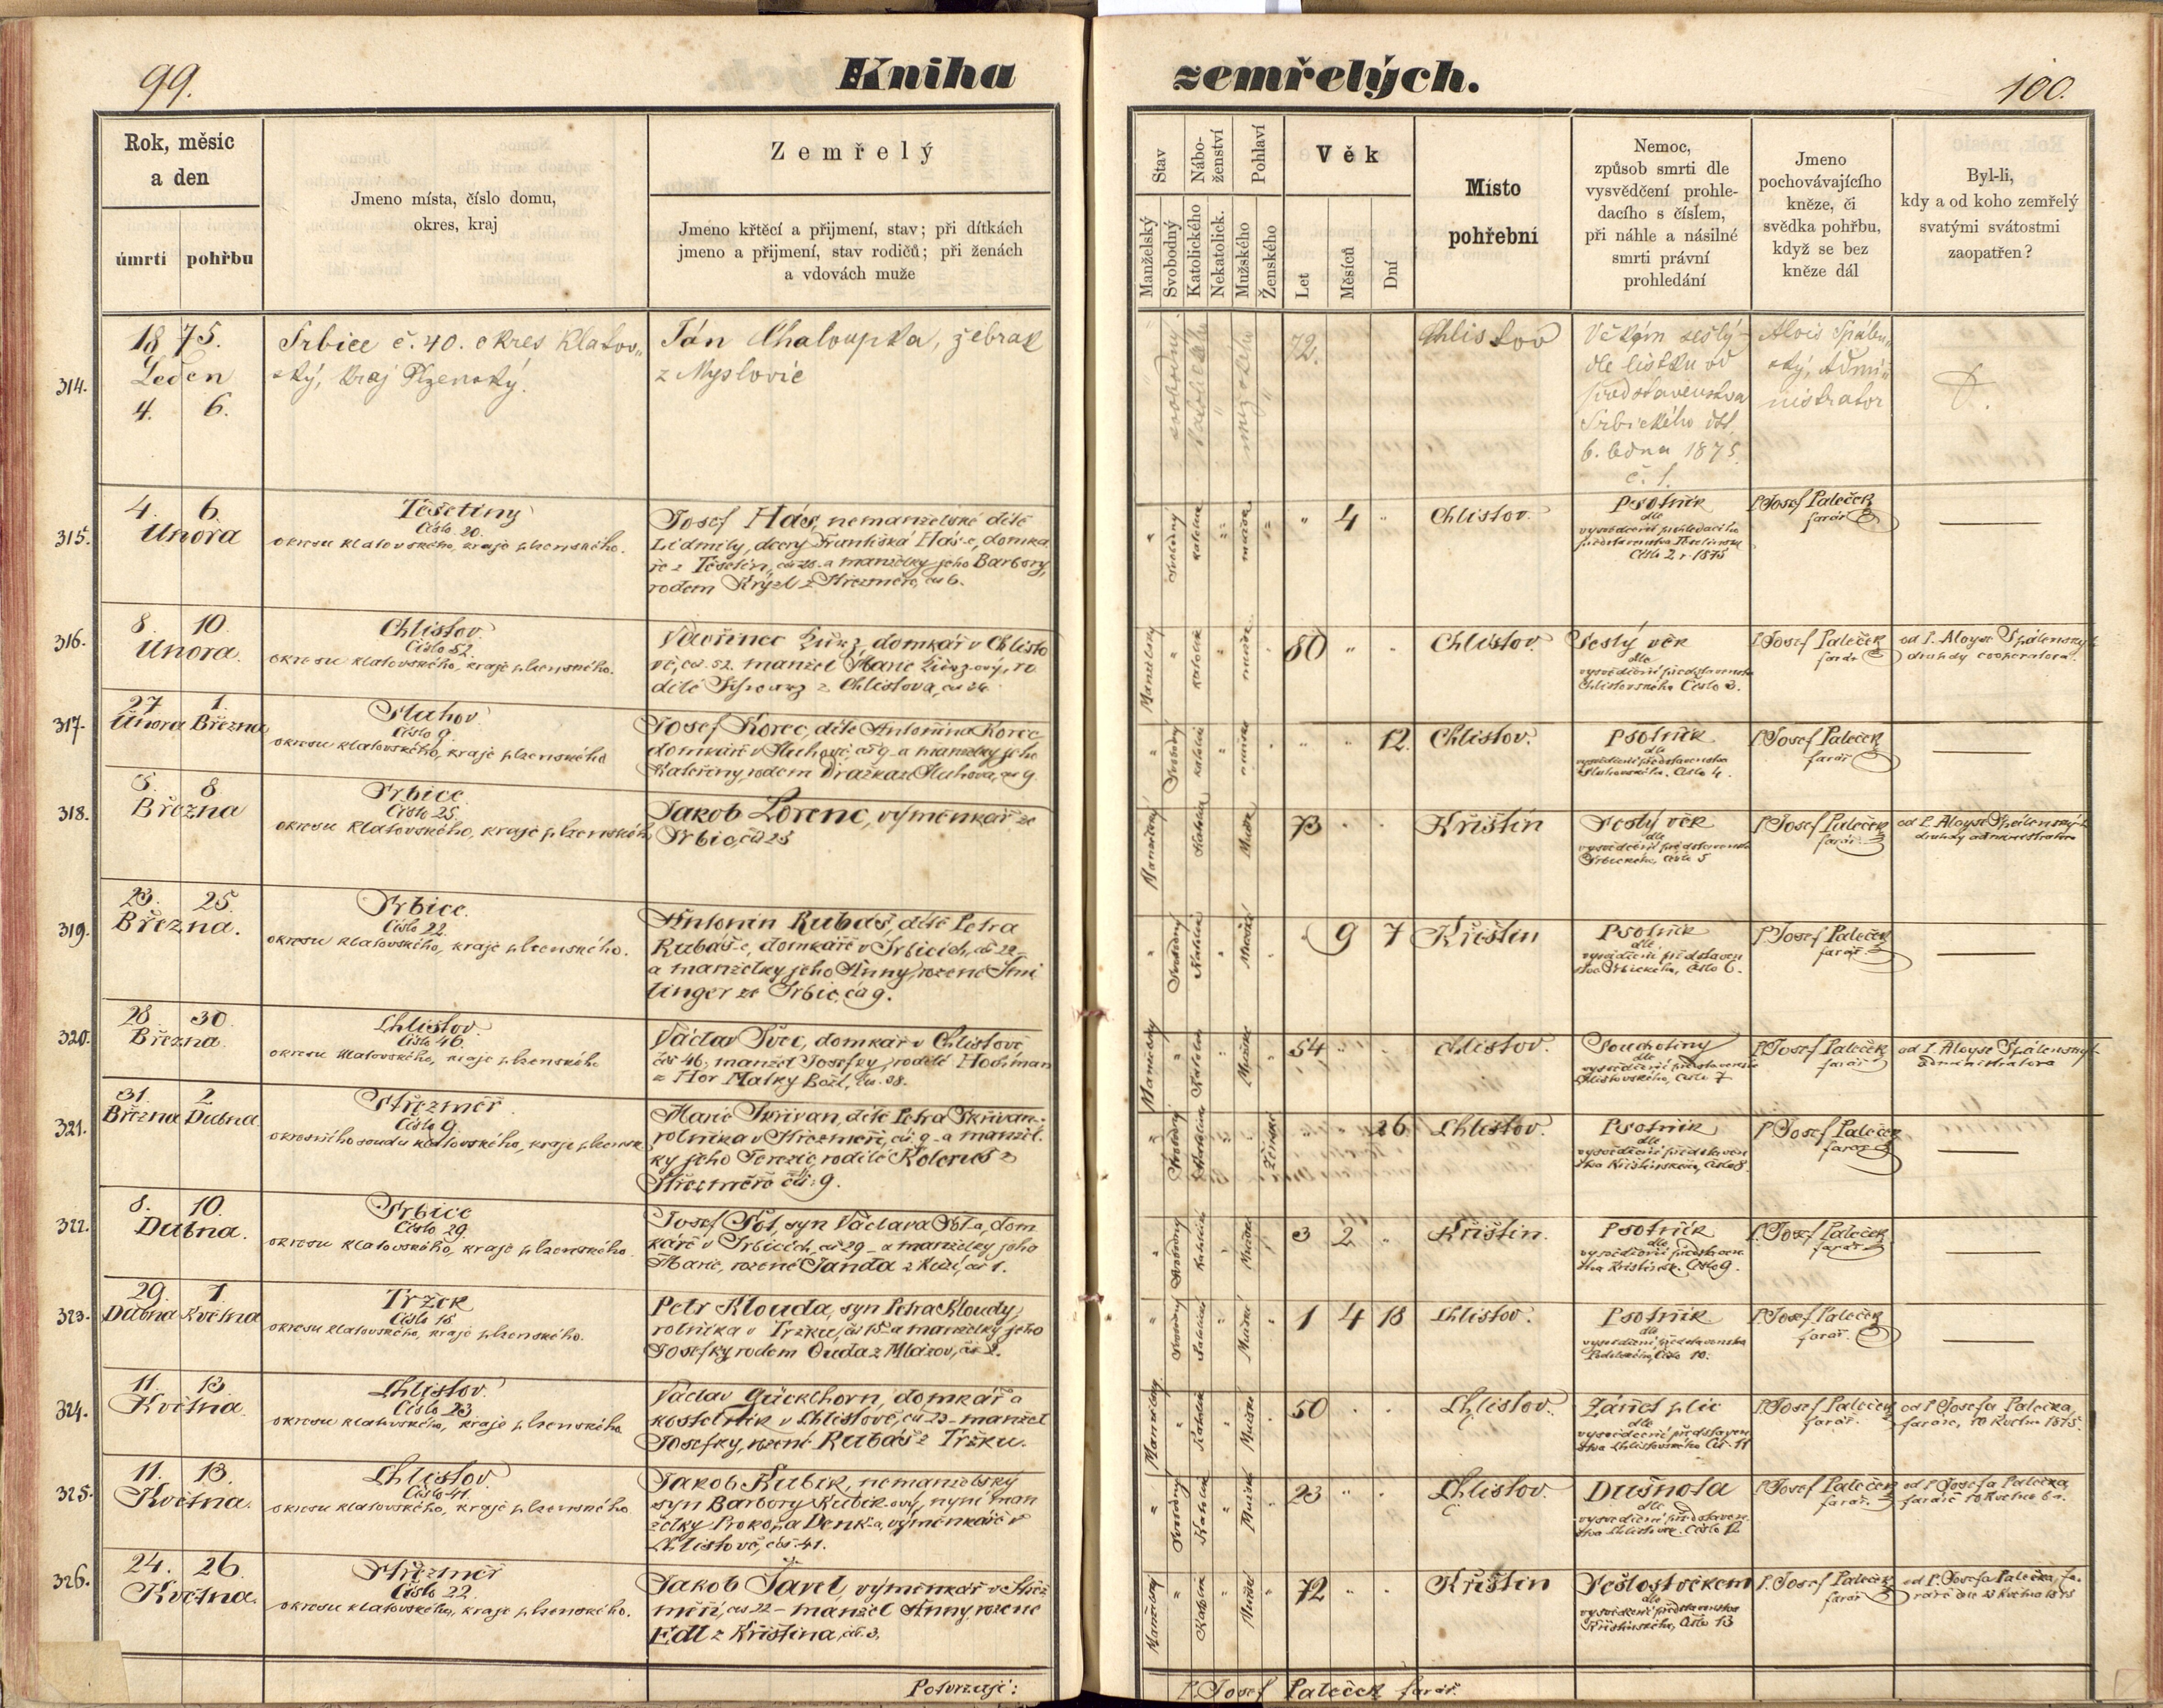 99.
Kniha
zemřelých.
100.
Rok, měsíc
a den
úmrtí
pohřbu
Jmeno místa, číslo domu,
okres, kraj
Zemřelý
Jmeno křtěcí a přijmení, stav; při dítkách
jmeno a přijmení, stav rodičů; při ženách
a vdovách muže
Stav
Manželský
Svobodný
Nábo-
ženství
Katolického
Nekatolick.
Pohlaví
Mužského
Ženského
Věk
Let
Měsíců
Dní
Místo
pohřební
Nemoc,
způsob smrti dle
vysvědčení prohle-
dacího s číslem,
při náhle a násilné
smrti právní
prohledání
Jmeno
pochovávajícího
kněze, či
svědka pohřbu,
když se bez
kněze dál
Byl-li,
kdy a od koho zemřelý
svatými svátostmi
zaopatřen?
314.
1875.
Leden
4. 6.
Srbice č. 40. okres Klatov„
ský, kraj Plzenský.
Ján Chaloupka, žebrak
z Myslovic
svobodný
katolický
mužský
72.
Chlistov
Věkem sešlý
dle lístku od
představenstva
Srbického ddt.
6. ledna 1875.
č. 1.
Alois Spálen„
ský, Admi„
nistrator
315.
4. 6.
Února
Těšetiny
Číslo 20.
okresu klatovského, kraje plzenského.
Josef Hás, nemanželské dítě
Lidmily, dcery Františka Háse, domka
ře z Těšetin, čís 20. a manželky jeho Barbory,
rodem Krýzl z Střezměře, čís 6.
Svobodný
katolick
mužské
4
Chlistov.
Psotník
dle
vysvědčení prohledacího
představenstva Těšetinska
Číslo 2 r. 1875
P. Josef Paleček
farář
316.
8. 10.
Února.
Chlistov.
Číslo 52.
okresu klatovského, kraje plzenského.
domkář v Chlisto
vě, čís. 52. manžel Marie
z Chlistova, čís 24.
Manželský
katolick
mužské
80
Chlistov.
Sešlý věk
dle
vysvědčení představenstva
Chlistovského Číslo 3.
P. Josef Paleček
farář
od P. Aloyse Spálenský
druhdy cooperatora.
317.
27 1.
Února Března
Sluhov.
Číslo 9.
okresu klatovského, kraje plzenského
Josef Korec, dítě Antonína Korce
domkáře v Sluhově, čís 9 - a manželky jeho
Kateřiny, rodem Dražka ze Sluhova, čís 9.
Svobodný
katolick
mužské
12.
Chlistov.
Psotník
dle
vysvědčení představenstva
Sluhovského. Číslo 4.
P. Josef Paleček
farář
318.
8
Března
Srbice
Číslo 25.
okresu klatovského, kraje plzenského
Jakob Lorenc, výměnkář ze
Srbic, čís 25
Manželský
Katolick
Mužské
73
Křištín
Sešlý věk
dle
vysvědčení představenstva
Srbického, číslo 5
P. Josef Paleček
farář
od P. Aloyse Spálenský
druhdy administratora
319.
23. 25.
Března.
Srbice.
Číslo 22.
okresu klatovského, kraje plzenského.
Antonín Rubáš, dítě Petra
Rubáš-e, domkáře v Srbicích, čís 22 -
a manželky jeho Anny, rozené Šmi
linger ze Srbic, čís 9.
Svobodný
Katolick
Mužské
9 7
Křištín
Psotník
dle
vysvědčení představen
stva Srbického, číslo 6.
P. Josef Paleček
farář
320.
28 30.
Března.
Chlistov.
Číslo 46.
okresu klatovského, kraje plzenského
Václav Švec, domkář v Chlistově
čís 46, manžel Josefky, rodilé Hochman
z Hor Matky Boží, čís. 38.
Manželský
Katolick
Mužské
54
Chlistov.
Souchotiny
dle
vysvědčení představenstva
Chlistovského, číslo 7
P. Josef Paleček
farář
od P. Aloyse Spálenský
administrátora
321.
31. 2
Března Dubna
Střezměř
Číslo 9.
okresního soudu klatovského, kraje plzensk
Marie Skřivan, dítě Petra Skřivan-
rolníka v Střezměři, čís. 9 - a manžel
ky jeho Terezie, rodilé Kolerus z
Střezměře čís. 9.
Svobodný
Katolick
Ženské
26
Chlistov.
Psotník
dle
vysvědčení představen
stva Křištínského, číslo 8.
P. Josef Paleček
farář
322.
8. 10.
Dubna.
Srbice
Číslo 29.
okresu klatovského, kraje plzenského.
syn Václava dom
káře v Srbicích, čís 29 - a manželky jeho
Marie, rozené Janda z čís 1.
Svobodný
Katolick
Mužské
3 2
Křištín.
Psotník
dle
vysvědčení představen
stva Křištínsk. Číslo 9.
P. Josef Paleček
farář
323.
29. 1.
Dubna Května
Tržek
Číslo 15
okresu klatovského, kraje plzenského.
Petr Klouda, syn Petra Kloudy,
rolníka v Tržku, čís 15 a manželky jeho
Josefky rodem Ouda z Mlázov, čís 2.
Svobodný
Katolick
Mužské
1 4 18
Chlistov.
Psotník
dle
vysvědčení představenstva
Číslo 10.
P. Josef Paleček
farář.
324.
11. 13.
Května
Chlistov.
Číslo 23.
okresu klatovského, kraje plzenského
Václav Gücklhorn, domkář a
kostelník v Chlistově, čís 23 - manžel
Josefky, rozené Rubáš z Tržku.
Manželský
Katolick
Mužské
50
Chlistov.
Zánět plic
dle
vysvědčení představen
stva Chlistovského Čís. 11
P. Josef Paleček
farář.
od P. Josefa Palečka,
faráře, 10 Května 1875.
325.
11. 13.
Května.
Chlistov
Číslo 41.
okresu klatovského, kraje plzenského.
Jakob Kubík, nemanželský
syn Barbory Kubík-ový, nyní man
želky Prokopa Denk-a, výměnkáře v
Chlistově, čís. 41.
Svobodný
Katolick
Mužské
23
Chlistov.
Dušnota
dle
vysvědčení představen
stva Chlistovsk. Číslo 12
P. Josef Paleček
farář.
od P. Josefa Palečka,
faráře 10 Května
326.
24. 26.
Května.
Střezměř
Číslo 22.
okresu klatovského, kraje plzenského.
Jakob Tavel, výměnkář v Střez
měři, čís 22 - manžel Anny rozené
Edl z Křištína, čís. 3.
Manželský
Katolick
Mužské
72
Křištín
Sešlost věkem
dle
vysvědčení představenstva
Křištínského, Číslo 13
P. Josef Paleček
farář
od P. Josefa Palečka, fa-
ráře dne 23 Května 1875
Potvrzuje:
P. Josef Paleček farář.